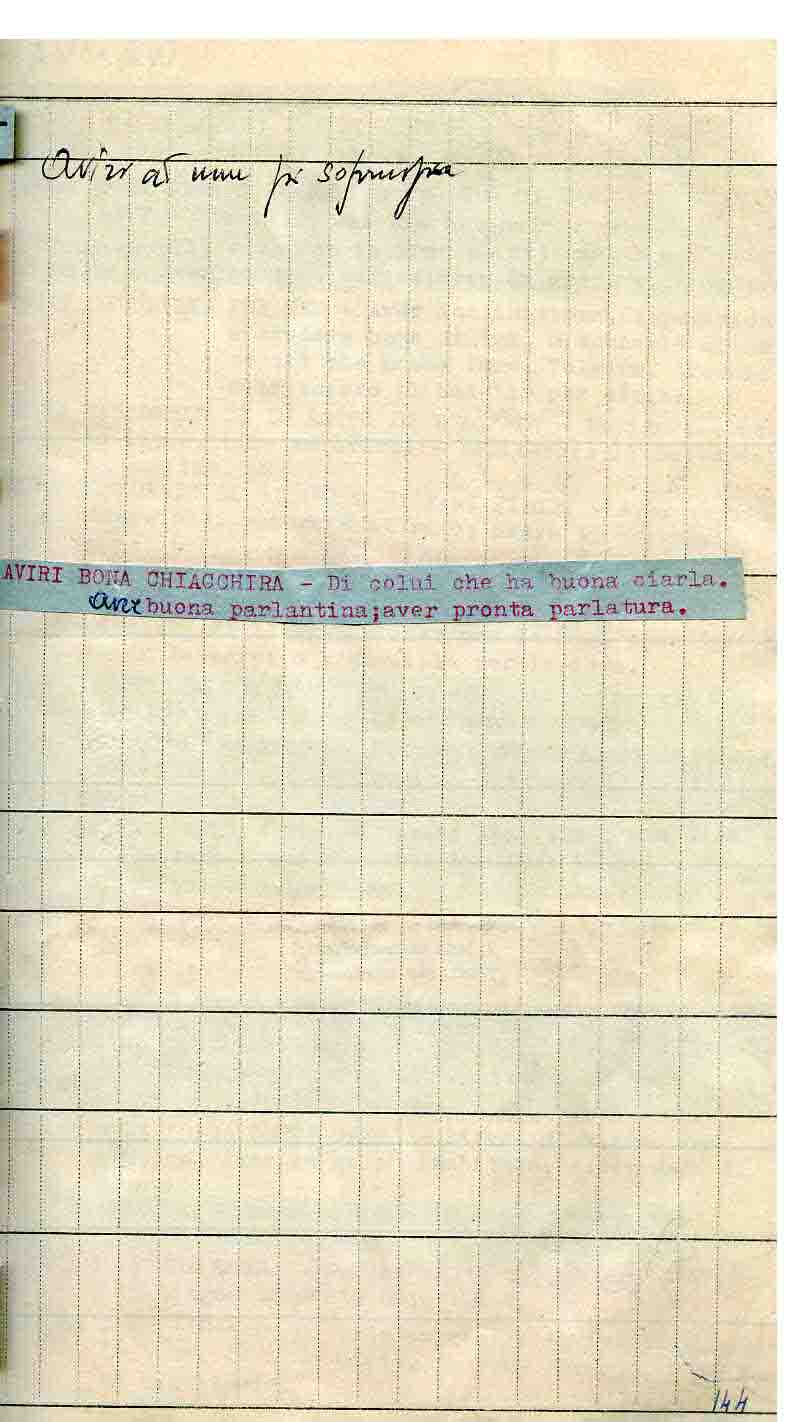 Aviri ad unu pi
AVIRI BONA CHIACCHIRA - Di colui che ha buona ciarla.
Aver buona parlantina;aver pronta parlatura.
144